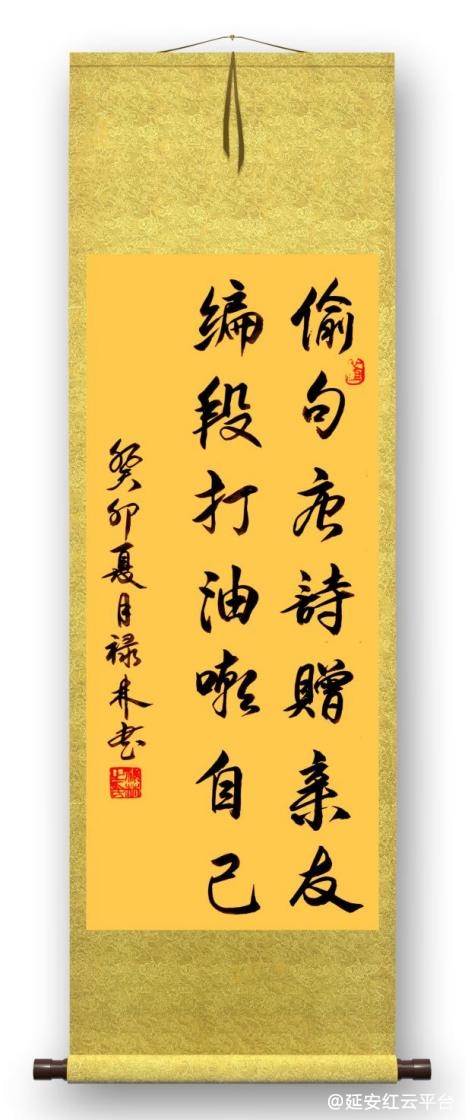 偷句唐詩贈亲友
编段打油嗽自己
癸卯夏月禄林书
@延安红云平台